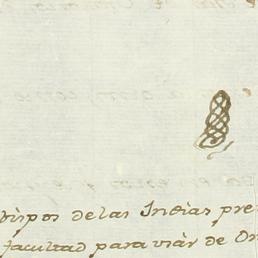 vispos de las Indias pre
facultad para usár de Or